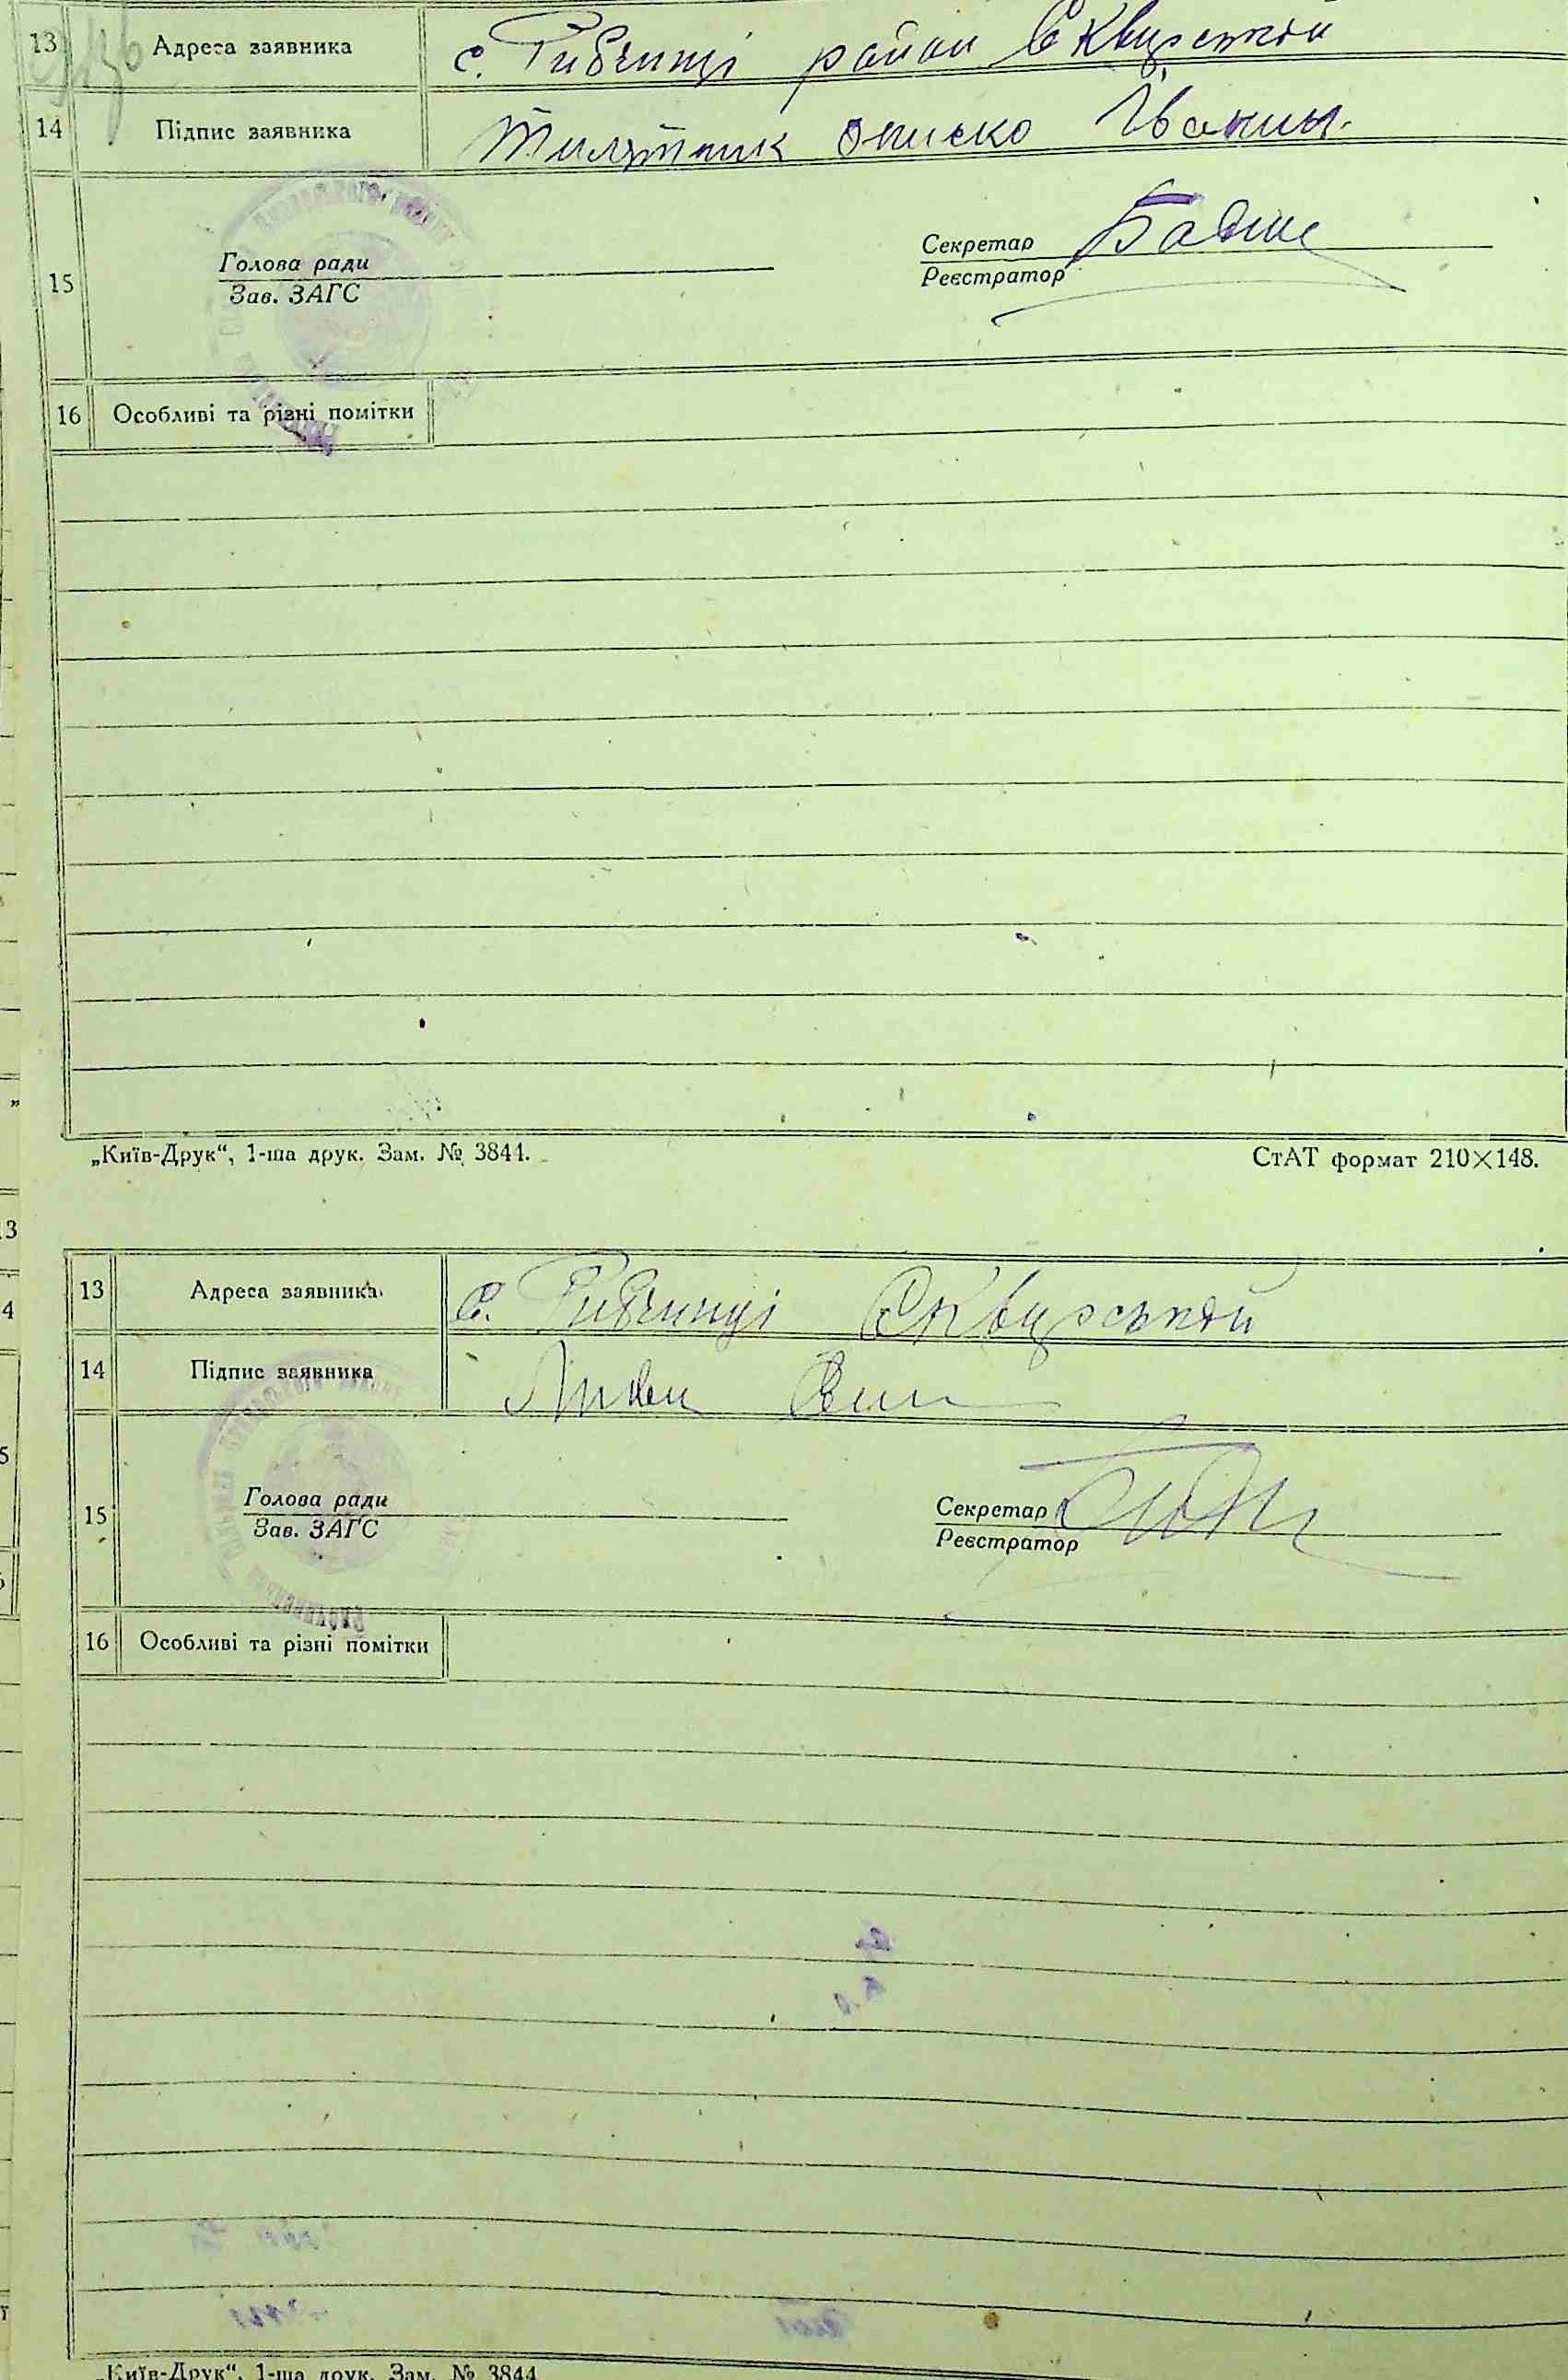 13 Адреса заявника с. Рибчинці район Сквирський
14 Підпис заявника Ониско Іванин.
15 Голова ради Секретар
Зав. ЗАГС Реєстратор
16 Особливі та різні помітки
„Київ-Друк“, 1-ша друк. Зам. № 3844. СтАТ формат 210×148.
13 Адреса заявника с. Рибчинці Сквирський
14 Підпис заявника
15 Голова ради Секретар
Зав. ЗАГС Реєстратор
16 Особливі та різні помітки
„Київ-Друк“, 1-ша друк. Зам. № 3844